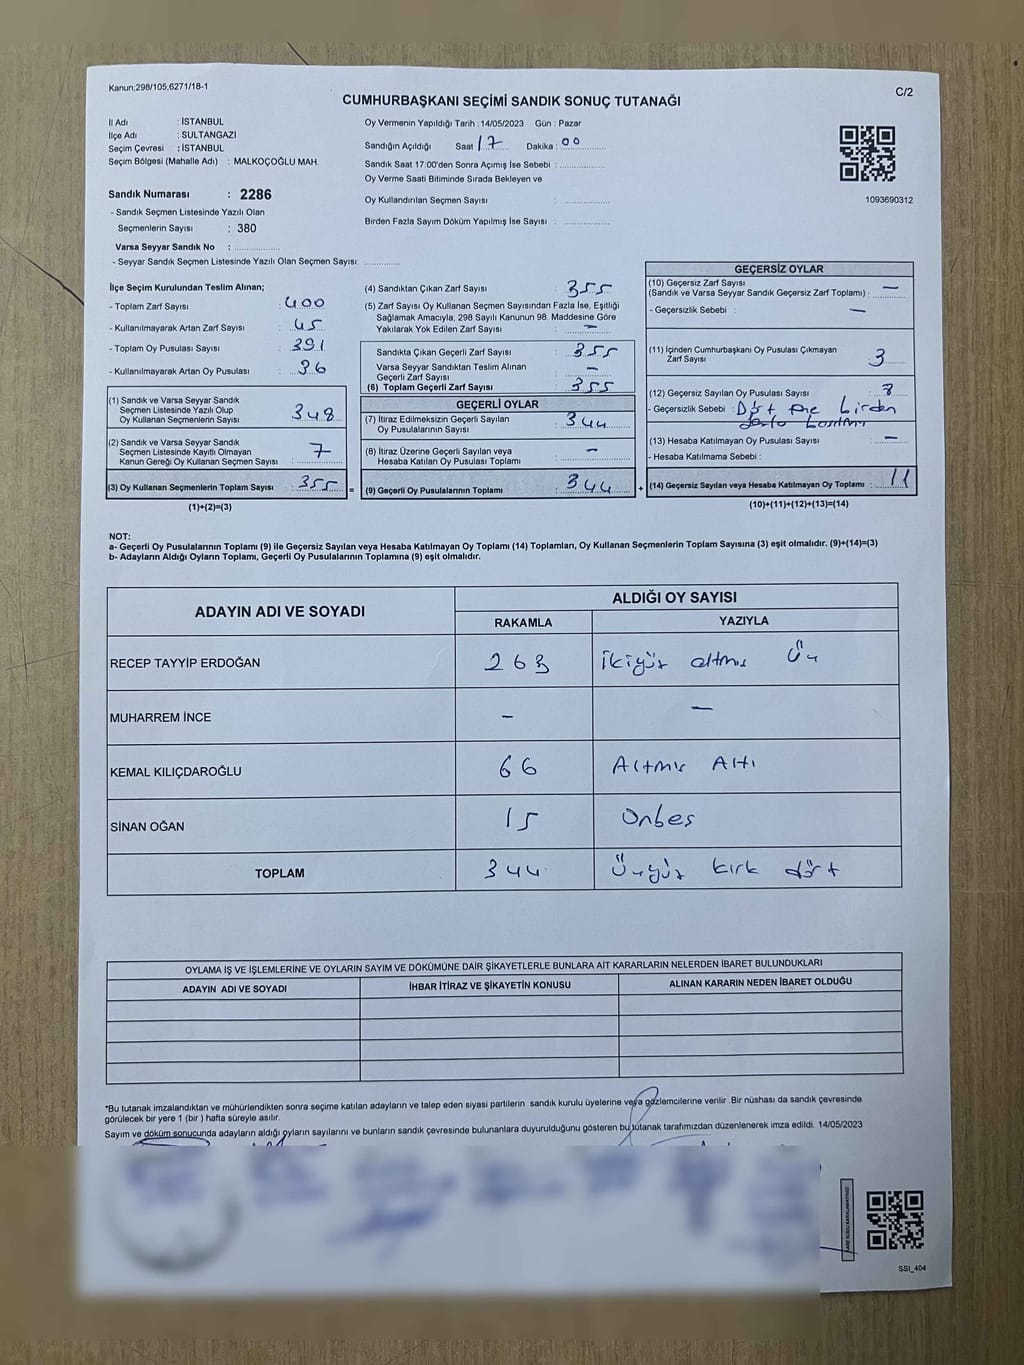 Kanun;298/105,6271/18-1
C/2
CUMHURBAŞKANI SEÇİMİ SANDIK SONUÇ TUTANAĞI
İl Adı : İSTANBUL
İlçe Adı : SULTANGAZI
Seçim Çevresi : İSTANBUL
Seçim Bölgesi (Mahalle Adı) : MALKOÇOĞLU MAH.
Sandık Numarası : 2286
- Sandık Seçmen Listesinde Yazılı Olan
Seçmenlerin Sayısı : 380
Varsa Seyyar Sandık No :
- Seyyar Sandık Seçmen Listesinde Yazılı Olan Seçmen Sayısı:
Oy Vermenin Yapıldığı Tarih :14/05/2023 Gün : Pazar
Sandığın Açıldığı Saat 17 Dakika : 00
Sandık Saat 17:00'den Sonra Açımış İse Sebebi :
Oy Verme Saati Bitiminde Sırada Bekleyen ve
Oy Kullandırılan Seçmen Sayısı :
Birden Fazla Sayım Döküm Yapılmış İse Sayısı :
1093690312
İlçe Seçim Kurulundan Teslim Alınan;
- Toplam Zarf Sayısı : 400
- Kullanılmayarak Artan Zarf Sayısı : 45
- Toplam Oy Pusulası Sayısı : 391
- Kullanılmayarak Artan Oy Pusulası : 36
(1) Sandık ve Varsa Seyyar Sandık
Seçmen Listesinde Yazılı Olup
Oy Kullanan Seçmenlerin Sayısı : 348
(2) Sandık ve Varsa Seyyar Sandık
Seçmen Listesinde Kayıtlı Olmayan
Kanun Gereği Oy Kullanan Seçmen Sayısı : 7
(3) Oy Kullanan Seçmenlerin Toplam Sayısı : 355
(1)+(2)=(3)
=
(4) Sandıktan Çıkan Zarf Sayısı : 355
(5) Zarf Sayısı Oy Kullanan Seçmen Sayısından Fazla İse, Eşitliği
Sağlamak Amacıyla, 298 Sayılı Kanunun 98. Maddesine Göre
Yakılarak Yok Edilen Zarf Sayısı : –
Sandıkta Çıkan Geçerli Zarf Sayısı : 355
Varsa Seyyar Sandıktan Teslim Alınan
Geçerli Zarf Sayısı : –
(6) Toplam Geçerli Zarf Sayısı : 355
GEÇERLİ OYLAR
(7) İtiraz Edilmeksizin Geçerli Sayılan
Oy Pusulalarının Sayısı : 344
(8) İtiraz Üzerine Geçerli Sayılan veya
Hesaba Katılan Oy Pusulası Toplamı : –
(9) Geçerli Oy Pusulalarının Toplamı : 344
+
GEÇERSİZ OYLAR
(10) Geçersiz Zarf Sayısı
(Sandık ve Varsa Seyyar Sandık Geçersiz Zarf Toplamı) : –
- Geçersizlik Sebebi : –
(11) İçinden Cumhurbaşkanı Oy Pusulası Çıkmayan
Zarf Sayısı : 3
(12) Geçersiz Sayılan Oy Pusulası Sayısı :
- Geçersizlik Sebebi : Dört birden
(13) Hesaba Katılmayan Oy Pusulası Sayısı : –
- Hesaba Katılmama Sebebi :
(14) Geçersiz Sayılan veya Hesaba Katılmayan Oy Toplamı : 11
(10)+(11)+(12)+(13)=(14)
NOT:
a- Geçerli Oy Pusulalarının Toplamı (9) ile Geçersiz Sayılan veya Hesaba Katılmayan Oy Toplamı (14) Toplamları, Oy Kullanan Seçmenlerin Toplam Sayısına (3) eşit olmalıdır. (9)+(14)=(3)
b- Adayların Aldığı Oyların Toplamı, Geçerli Oy Pusulalarının Toplamına (9) eşit olmalıdır.
ADAYIN ADI VE SOYADI
ALDIĞI OY SAYISI
RAKAMLA YAZIYLA
RECEP TAYYİP ERDOĞAN 263 İkiyüz altmış Üç
MUHARREM İNCE – –
KEMAL KILIÇDAROĞLU 66 Altmış Altı
SİNAN OĞAN 15 Onbeş
TOPLAM 344 Üçyüz kırk dört
OYLAMA İŞ VE İŞLEMLERİNE VE OYLARIN SAYIM VE DÖKÜMÜNE DAİR ŞİKAYETLERLE BUNLARA AİT KARARLARIN NELERDEN İBARET BULUNDUKLARI
ADAYIN ADI VE SOYADI İHBAR İTİRAZ VE ŞİKAYETİN KONUSU ALINAN KARARIN NEDEN İBARET OLDUĞU
*Bu tutanak imzalandıktan ve mühürlendikten sonra seçime katılan adayların ve talep eden siyasi partilerin sandık kurulu üyelerine veya gözlemcilerine verilir .Bir nüshası da sandık çevresinde
görülecek bir yere 1 (bir ) hafta süreyle asılır.
Sayım ve döküm sonucunda adayların aldığı oyların sayılarını ve bunların sandık çevresinde bulunanlara duyurulduğunu gösteren bu tutanak tarafımızdan düzenlenerek imza edildi. 14/05/2023
SSI_404